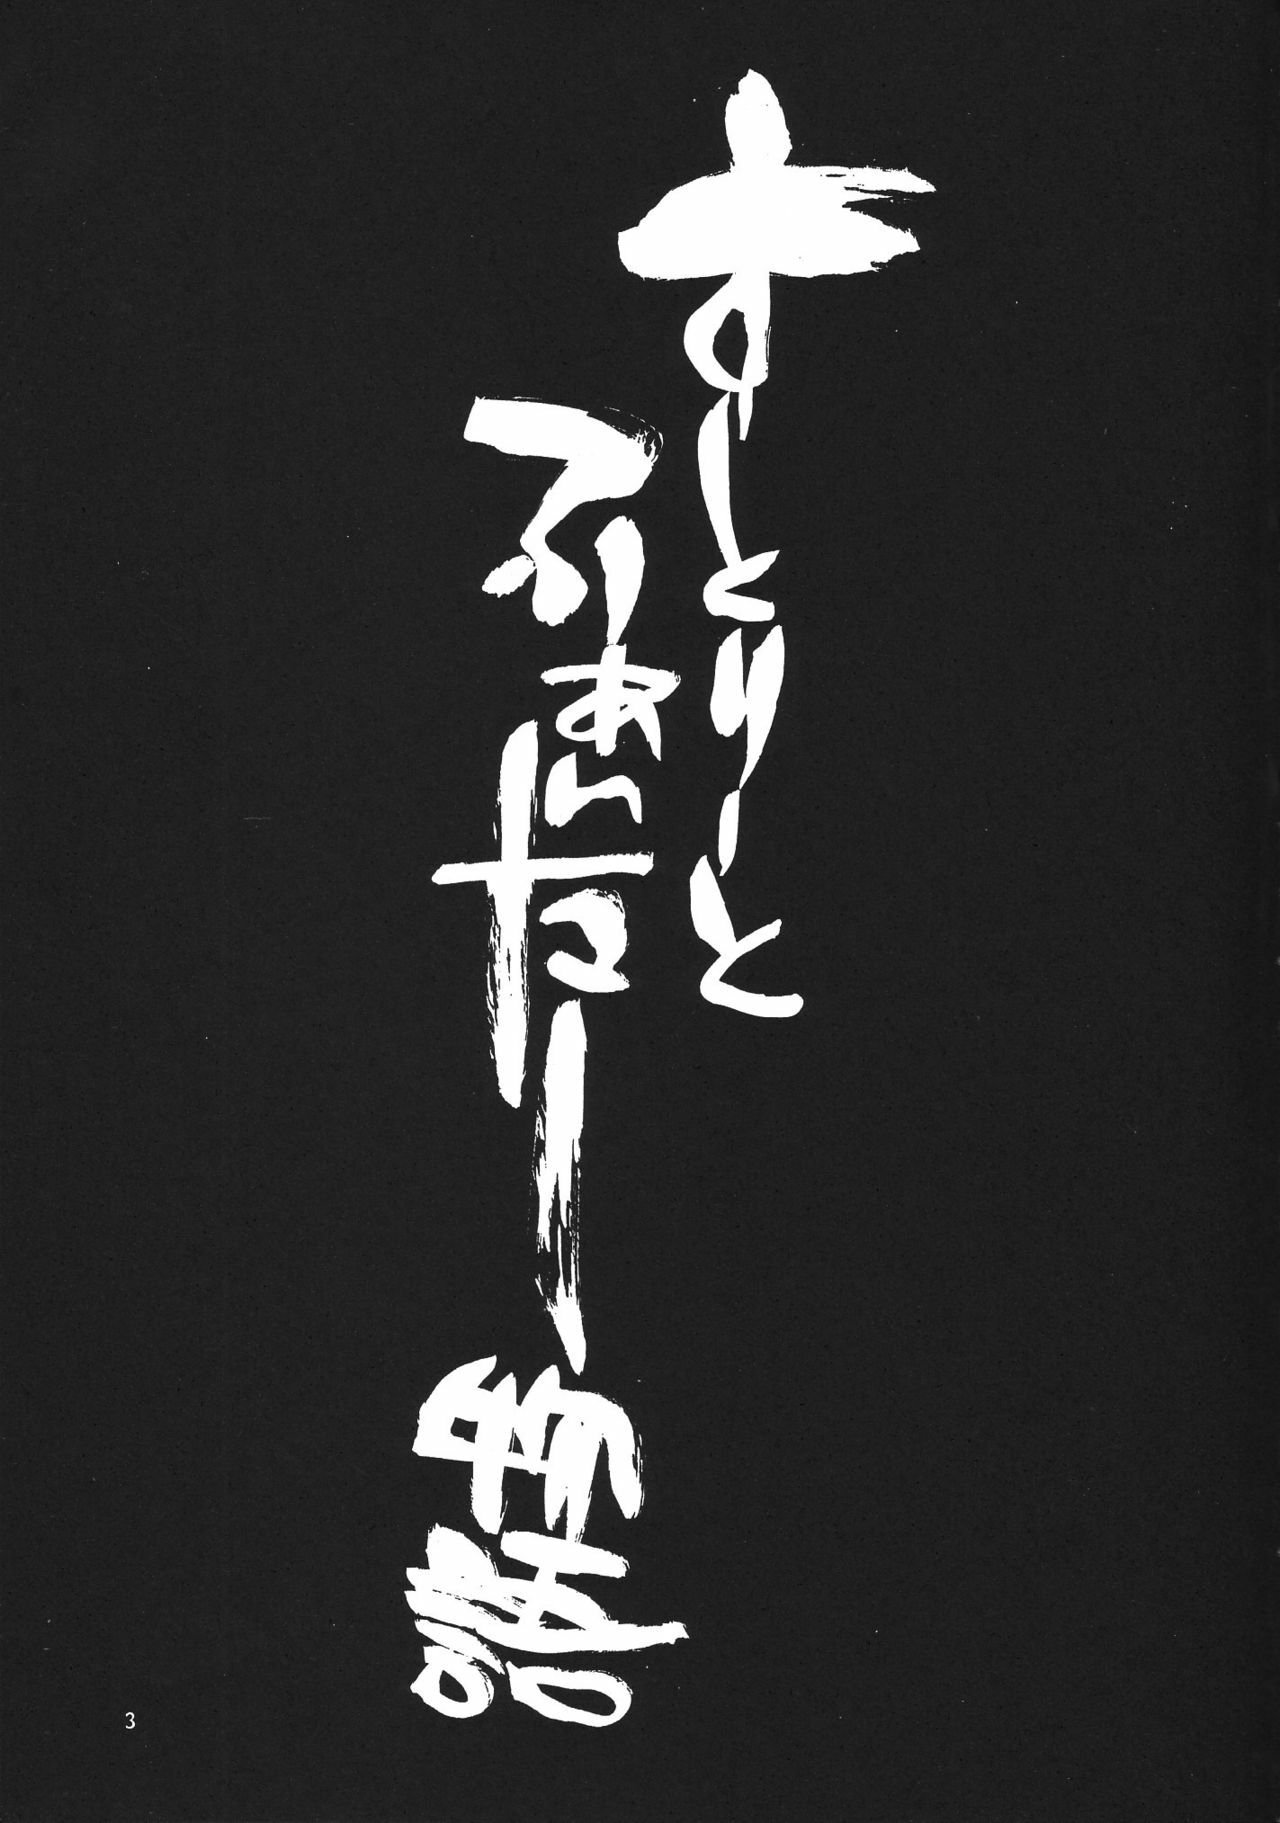 すとりーと
ふぁいたー物語
3